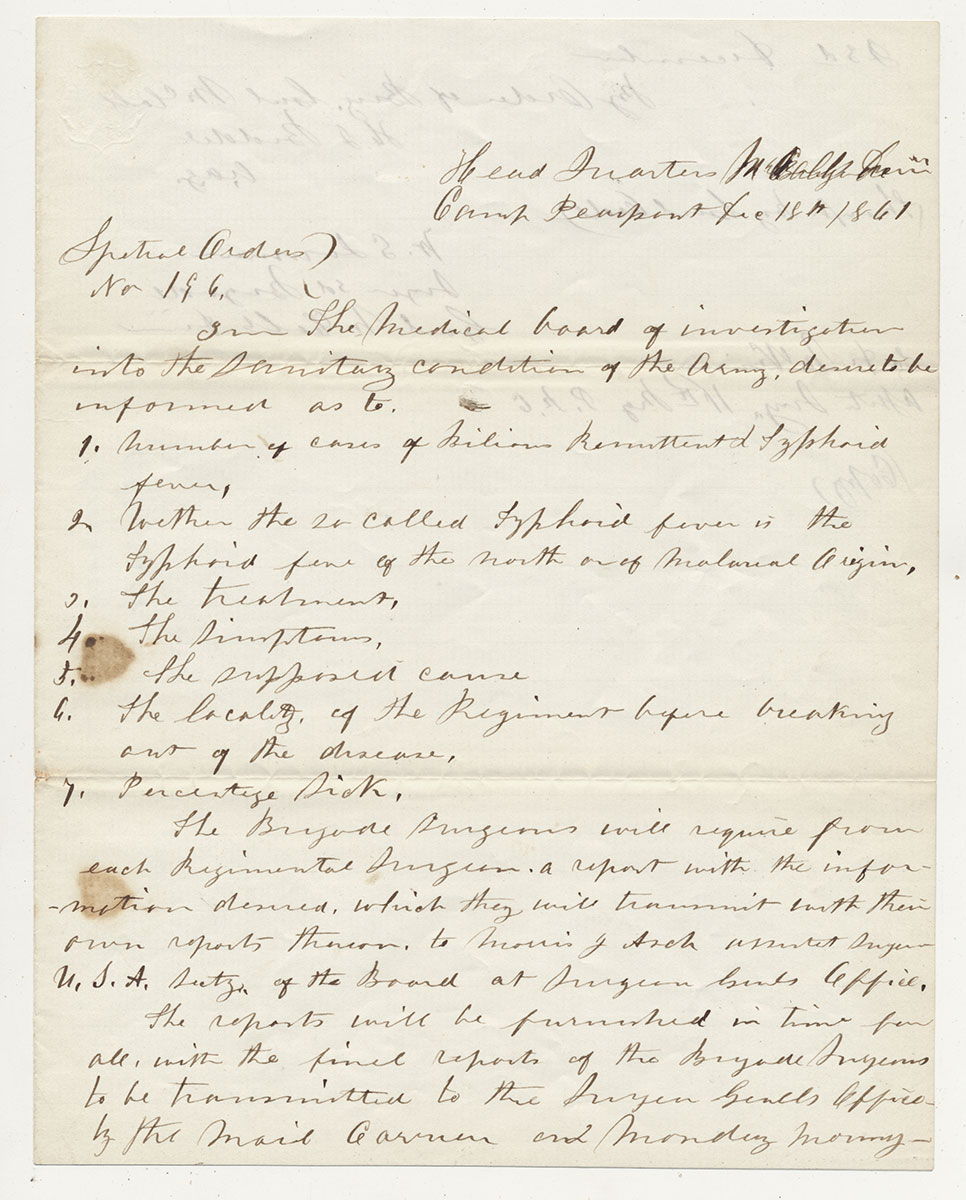 Head Quarters McCalls Divn
Camp Pearpont Dec 18th / 1861
Spetial Orders)
No 196. (
3rd The Medical board of investigation
into the Sanitary condition of the Army, desire to be
informed as to.
1. Number of cases of Bilious Remittent & Typhoid
fever,
2. Wether the so called Typhoid fever is the
Typhoid feve of the north or of Malarial Origin,
3. The treatment,
4 The Simptoms,
5. The supposed cause
6. The locality, of the Regiment before breaking
out of the disease,
7. Percentage Sick,
The Brigade Surgeons will require from
each Regimental Surgeon. a report with the infor-
-mation desired, which they will transmit with their
own reports thereon, to Morris J Asch assistet Surgeon
U. S. A. Secty. of the Board at Surgeon Genls Office,
The reports will be furnished in time for
all, with the final reports of the Brigade Surgeons
to be transmitted to the Surgeon Genlls Office
by the Mail Carrier on Monday Morning